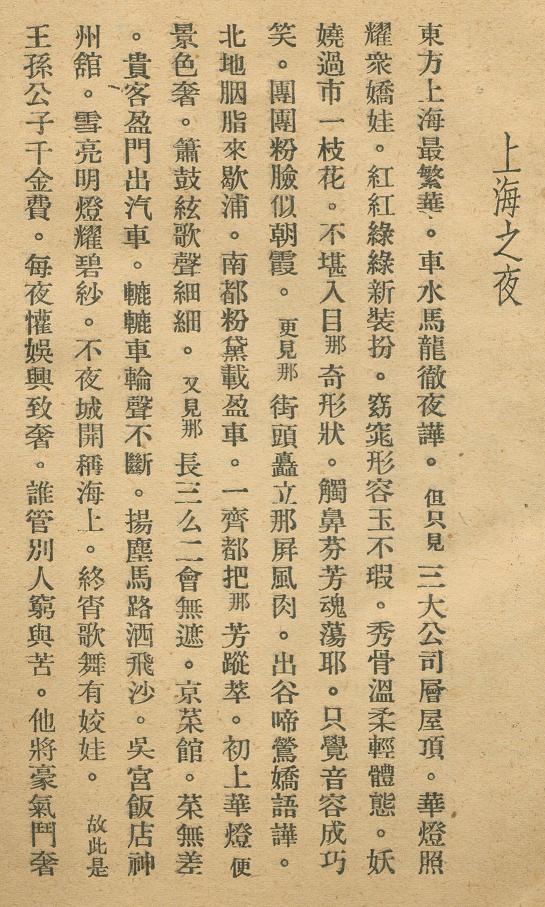 上海之夜
東方上海最繁華。車水馬龍徹夜譁。但只見三大公司層屋頂。華燈照
耀衆嬌娃。紅紅綠綠新裝扮。窈窕形容玉不瑕。秀骨溫柔輕體態。妖
嬈過市一枝花。不堪入目那奇形狀。觸鼻芬芳魂蕩耶。只覺音容成巧
笑。團團粉臉似朝霞。更見那街頭矗立那屏風肉。出谷啼鶯嬌語譁。
北地胭脂來歇浦。南都粉黛載盈車。一齊都把那芳蹤萃。初上華燈便
景色奢。簫鼓絃歌聲細細。又見那長三么二會無遮。京菜館。菜無差
。貴客盈門出汽車。轆轆車輪聲不斷。揚塵馬路洒飛沙。吳宮飯店神
州舘。雪亮明燈耀碧紗。不夜城開稱海上。終宵歌舞有姣娃。故此是
王孫公子千金費。每夜懽娛興致奢。誰管別人窮與苦。他將豪氣鬥奢